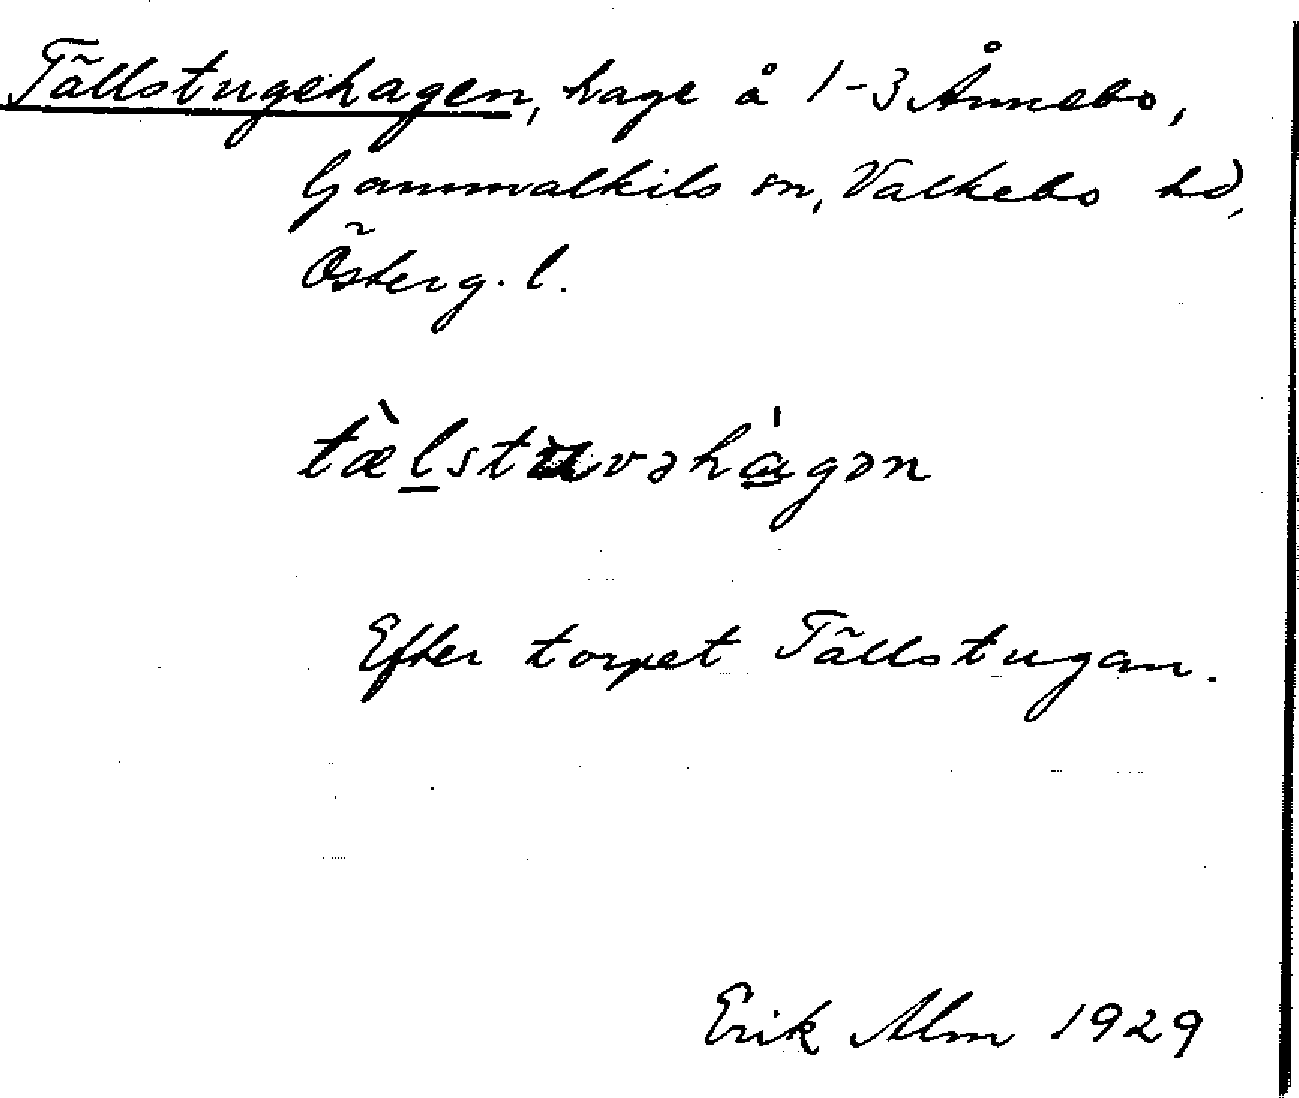 Tällstugehagen, hage å 1-3 Ånnebo,
Gammalkils sn, Valkebo hd,
Österg. l.
tæ̀lstuvəhágən
Efter torpet Tällstugan.
Erik Alm 1929